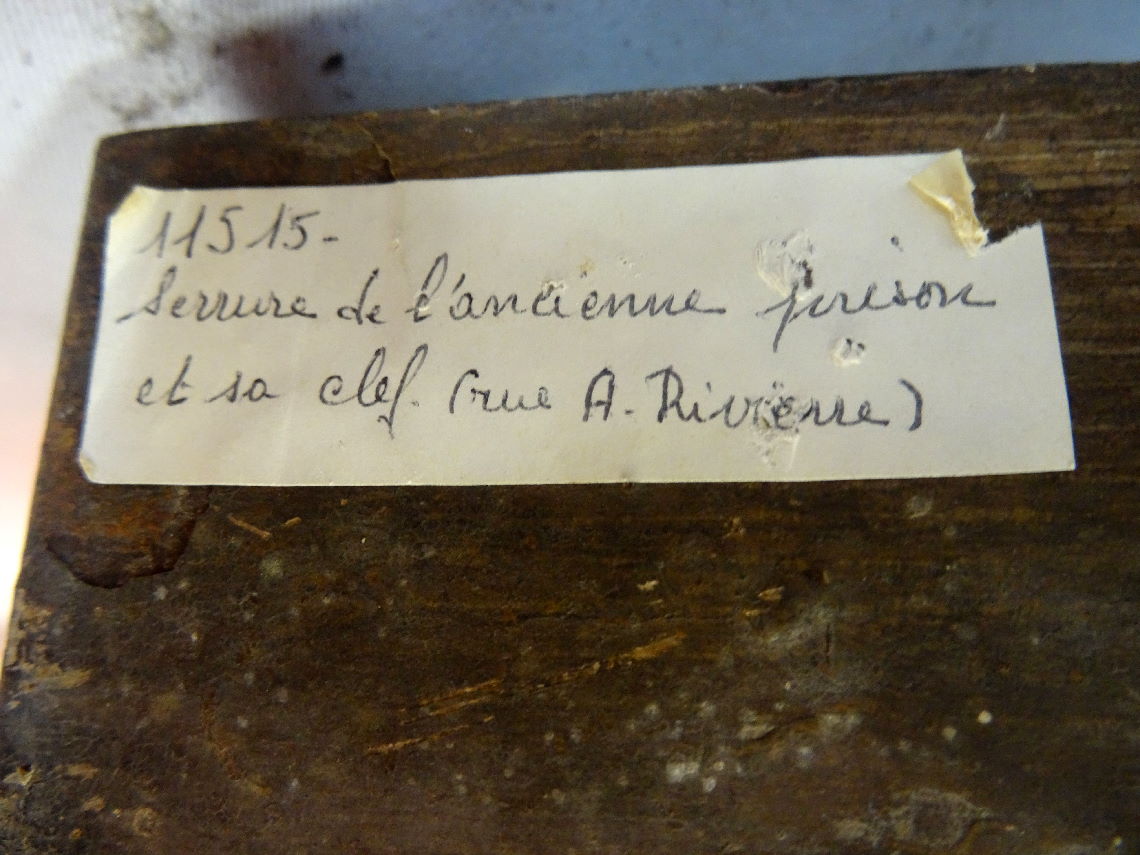 11515-
Serrure de l'ancienne prison
et sa clef. (rue A. Rivière)